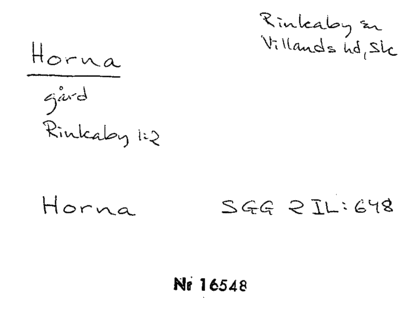 Rinkaby sn
Villands hd, Sk
Horna
gård
Rinkaby 1:2
Horna SGG 2 IL: 648
Nr 16548